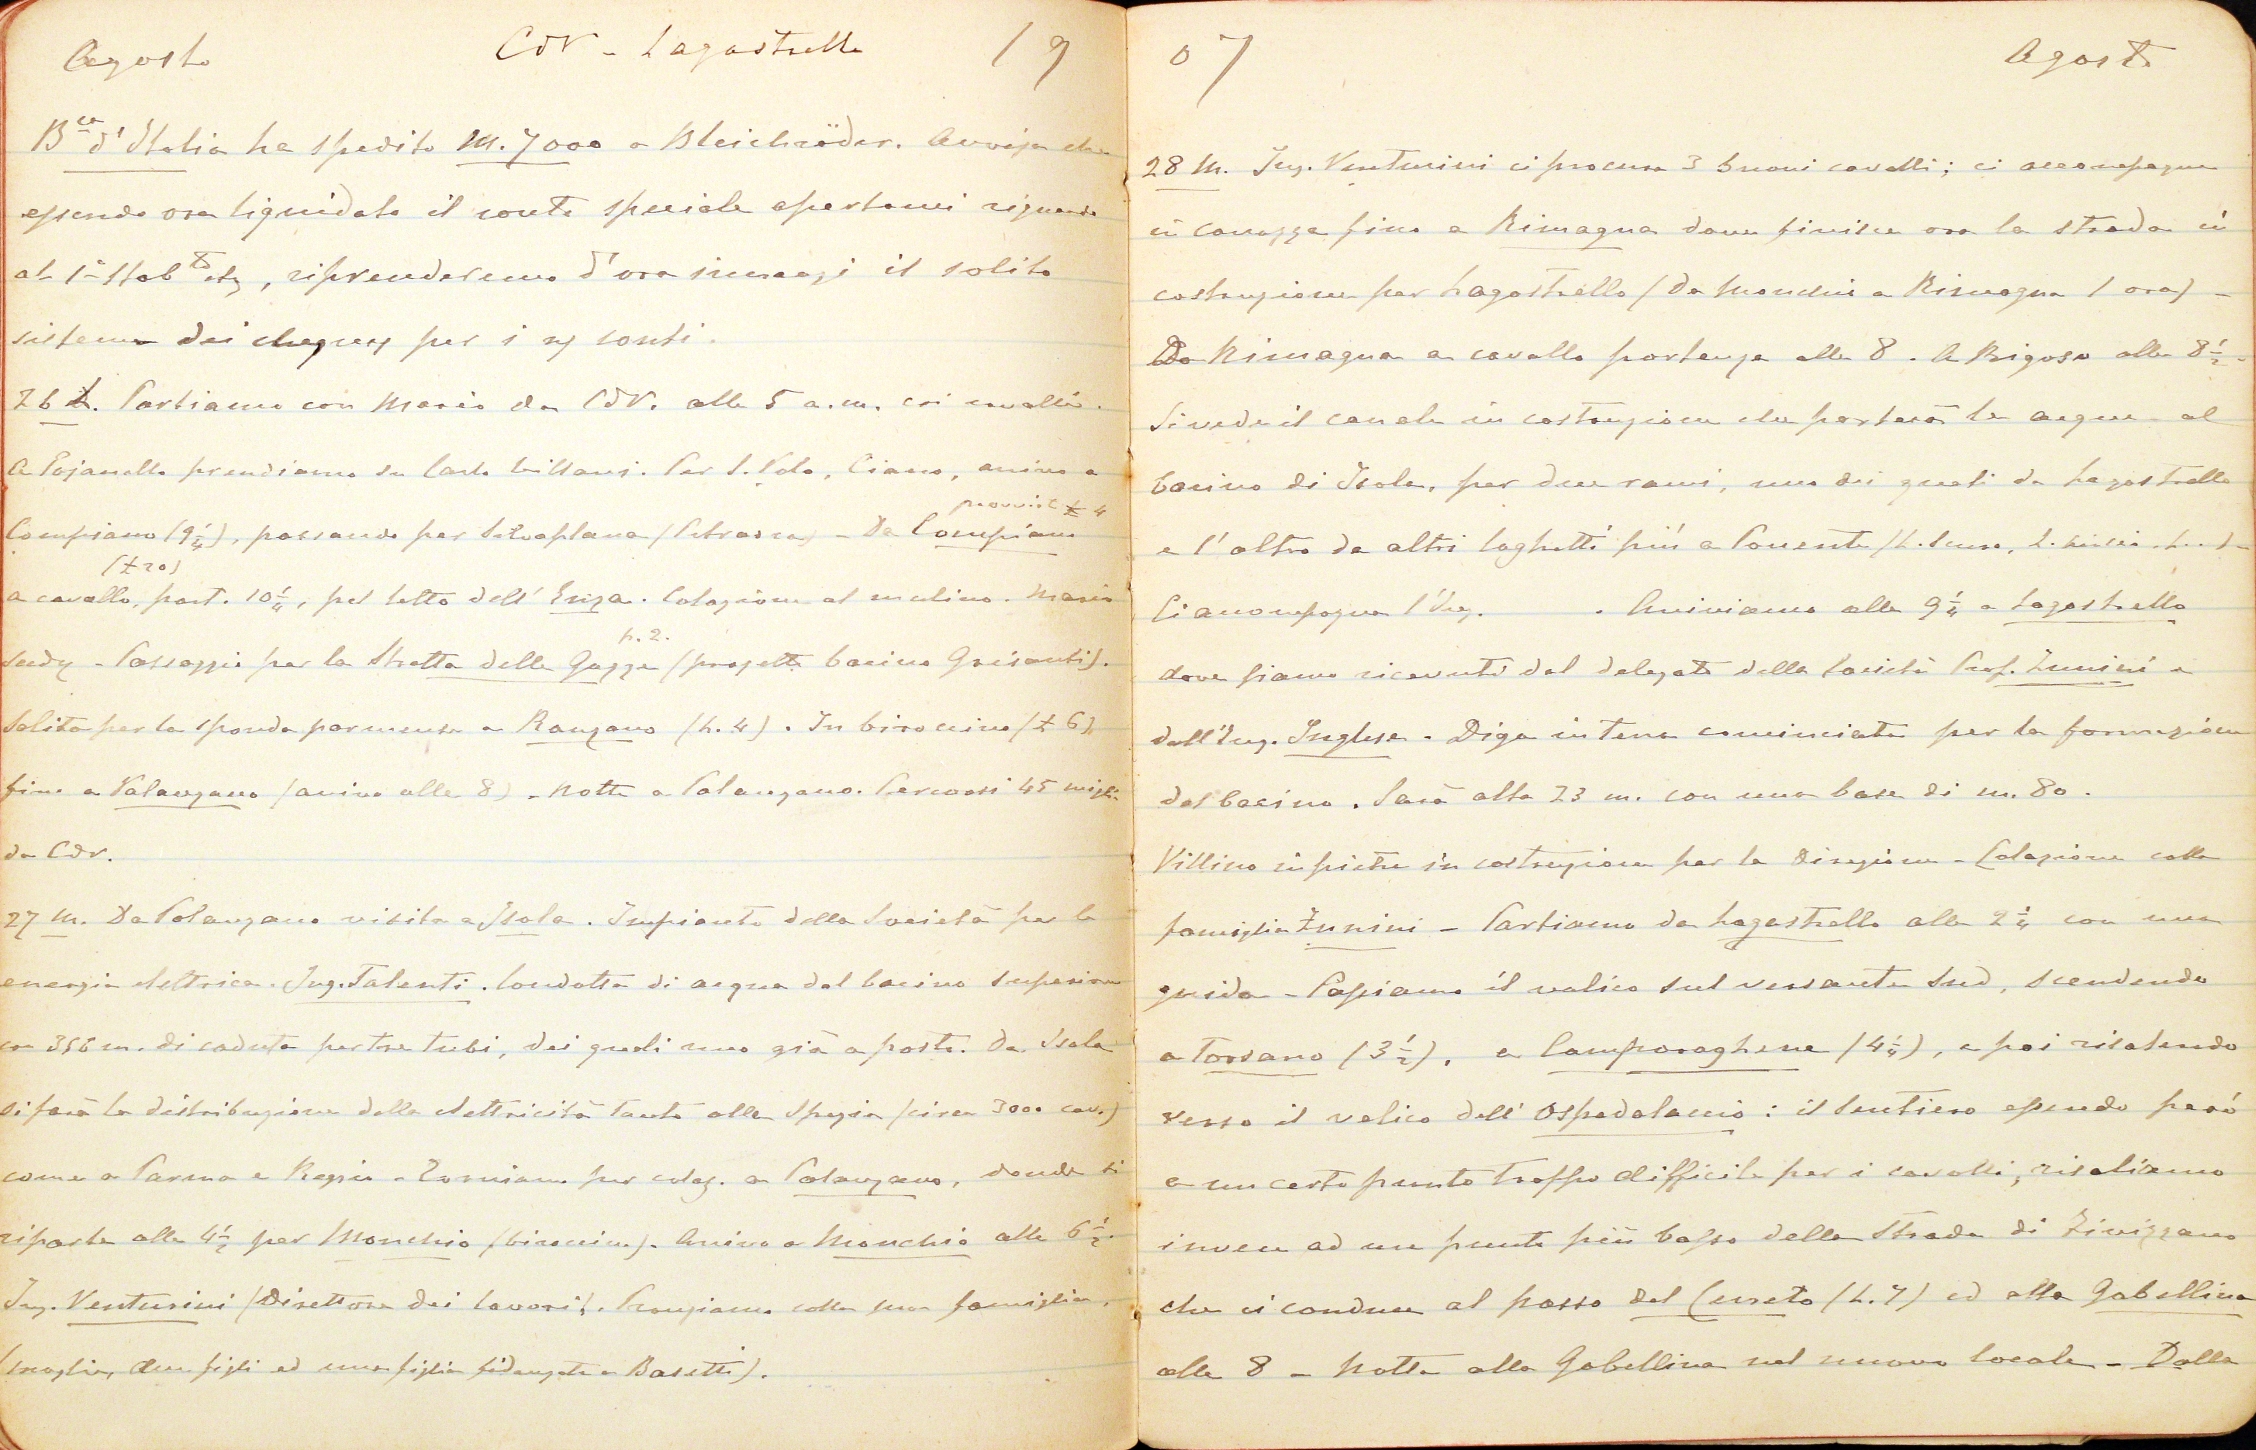 Agosto CdV - Lagastrello 19
Bca d'Italia ha spedito M. 7000 a Bleichröder. Avvisa che
essendo ora liquidato il conto speciale apertomi riguardo
al 1° Stabto etz, riprenderemo d'ora innanzi il solito
sistema dei cheques per i ns/ conti.
26 L. Partiamo con Mario da CdV. alle 5 a.m. coi cavalli.
A Pojanello prendiamo su Carlo Villani. Per S. Polo, Ciano, arrivo a
provvist £ 4
Compiano (9 1/4), passando per Selvapiana (Petrarca) - Da Compiano
(£ 20)
a cavallo, part. 10 1/4, pel letto dell' Enza. Colazione al mulino. Mario
h. 2.
- Passaggio per la Stretta delle Gazze (progetto bacino Grisanti).
Salita per la sponda parmense a Ranzano (h. 4). In biroccino (£ 6)
fino a Palanzano (arrivo alle 8) - Notte a Palanzano. Percorsi 45 miglia
da CdV.
27 M. Da Palanzano visita a Isola. Impianto della Società per la
energia elettrica. Ing. Talenti. Condotta di acqua dal bacino superiore
con 356 m. di caduta per tre tubi, dei quali uno già a posto. Da Isola
si farà la distribuzione della elettricità tanto alla Spezia (circa 3000 cav.)
come a Parma e Reggio - Torniamo per colaz. a Palanzano, donde si
riparte alle 4 1/2 per Monchio (biroccino). Arrivo a Monchio alle 6 1/2.
Ing. Venturini (Direttore dei lavori). Pranziamo colla sua famiglia.
(moglie, due figli ed una figlia fidanzata a Basetti).
07 Agosto
28 M. Ing. Venturini ci procura 3 buoni cavalli; ci accompagna
in carrozza fino a Rimagna dove finisce ora la strada in
costruzione per Lagastrello (da Monchio a Rimagna 1 ora) -
Da Rimagna a cavallo partenza alle 8. A Rigoso alle 8 1/2 -
Si vede il canale in costruzione che porterà le acque al
bacino di Isola, per due rami, uno dei quali da Lagastrello
e l'altro da altri laghetti più a Ponente (L. Scuro,
Ci accompagna l'Ing. . Arriviamo alle 9 1/4 a Lagastrello
dove siamo ricevuti dal delegato della Società Prof. Zunini e
dall'Ing. Inglese. Diga in terra cominciata per la formazione
del bacino. Sarà alta 23 m. con una base di m. 80.
Villino in pietra in costruzione per la Direzione - Colazione colla
famiglia Zunini - Partiamo da Lagastrello alle 2 1/4 con una
guida - Passiamo il valico sul versante Sud, scendendo
a Torsano (3 1/2), a Camporaghena (4 1/4), e poi risalendo
verso il valico dell' Ospedalaccio: il sentiero essendo però
a un certo punto troppo difficile per i cavalli, risaliamo
invece ad un punto più basso della strada di Fivizzano
che ci conduce al passo del Cerreto (h. 7) ed alla Gabellina
alle 8 - Notte alla Gabellina nel nuovo locale - Dalla